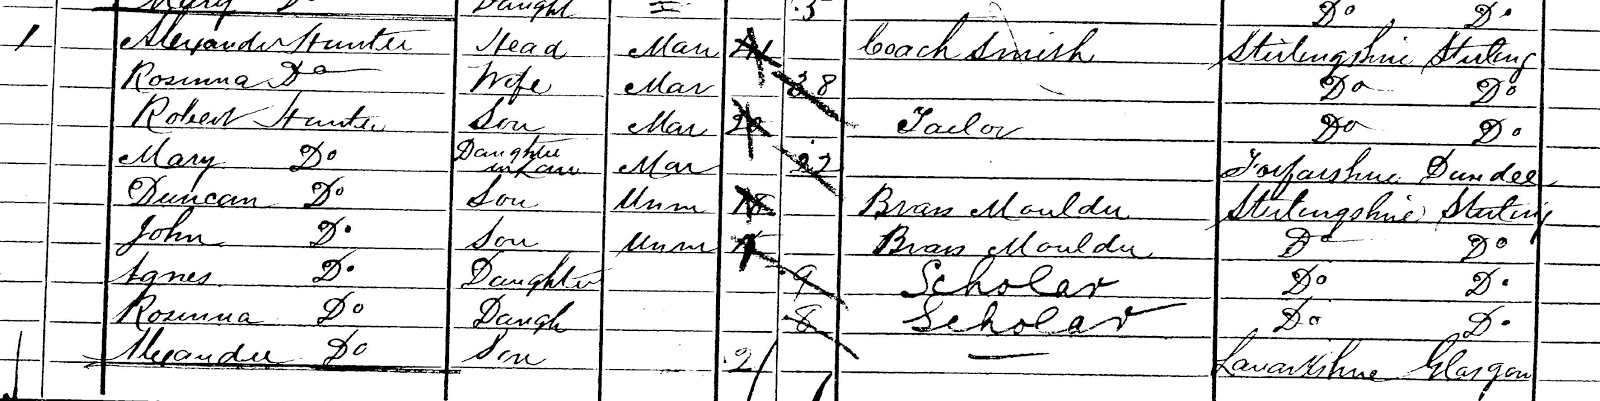 Mary Do Daught 3 Do Do
1 Alexander Hunter Head Mar Coach Smith Stirlingshire Stirling
Rosinna Do Wife Mar 38 Do Do
Robert Hunter Son Mar 20 Tailor Do Do
Mary Do Daughter in Law Mar 22 Forfarshire Dundee
Duncan Do Son Unm Brass Moulder Stirlingshire Stirling
John Do Son Unm Brass Moulder Do Do
Agnes Do Daughter 9 Scholar Do Do
Rosinna Do Daugh 8 Scholar Do Do
Alexander Do Son 2 — Lanarkshire Glasgow